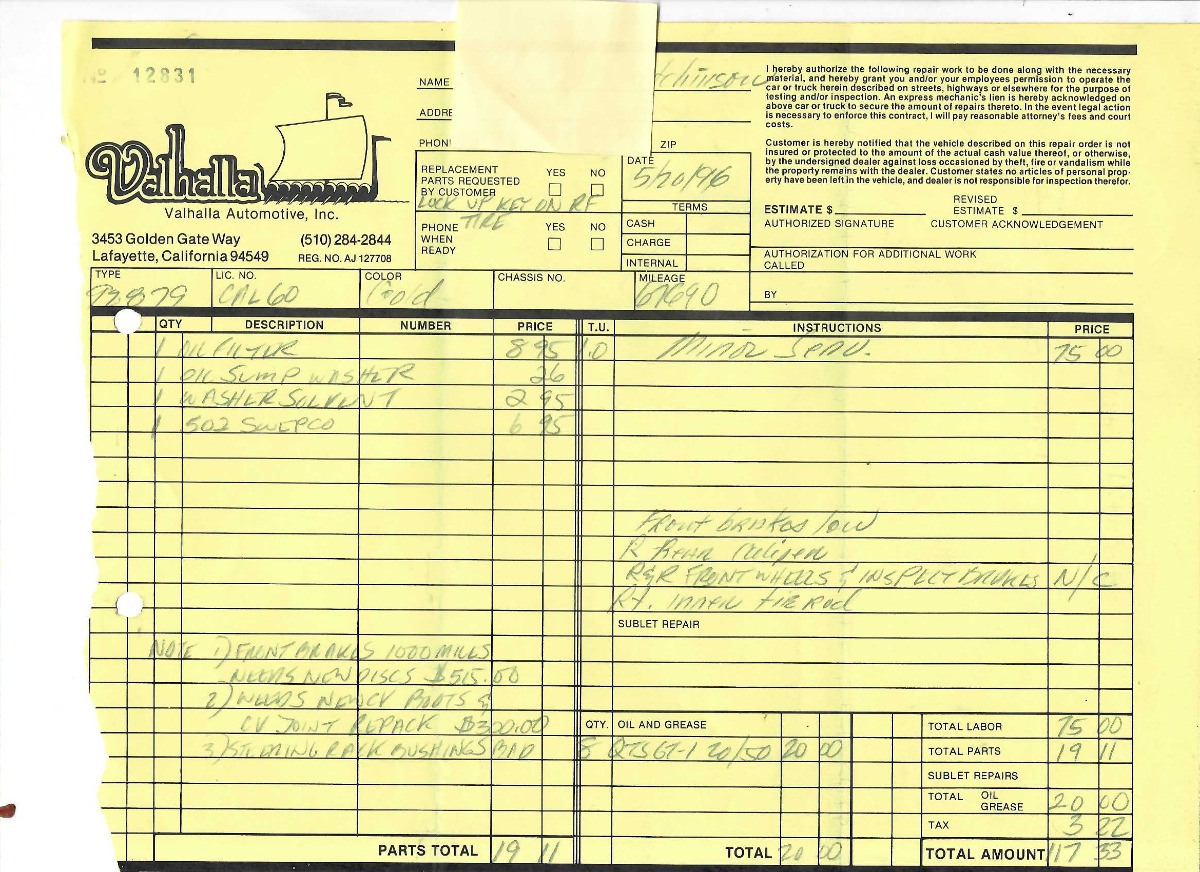 No 12831
NAME tchinson
ADDRE
PHON
ZIP
Valhalla
Valhalla Automotive, Inc.
3453 Golden Gate Way (510) 284-2844
Lafayette, California 94549 REG. NO. AJ 127708
REPLACEMENT PARTS REQUESTED BY CUSTOMER YES NO
LOCK UP KEY ON RF TIRE
PHONE WHEN READY YES NO
DATE 5/20/96
TERMS
CASH
CHARGE
INTERNAL
I hereby authorize the following repair work to be done along with the necessary
material, and hereby grant you and/or your employees permission to operate the
car or truck herein described on streets, highways or elsewhere for the purpose of
testing and/or inspection. An express mechanic's lien is hereby acknowledged on
above car or truck to secure the amount of repairs thereto. In the event legal action
is necessary to enforce this contract, I will pay reasonable attorney's fees and court
costs.
Customer is hereby notified that the vehicle described on this repair order is not
insured or protected to the amount of the actual cash value thereof, or otherwise,
by the undersigned dealer against loss occasioned by theft, fire or vandalism while
the property remains with the dealer. Customer states no articles of personal prop-
erty have been left in the vehicle, and dealer is not responsible for inspection therefor.
ESTIMATE $ REVISED ESTIMATE $
AUTHORIZED SIGNATURE CUSTOMER ACKNOWLEDGEMENT
AUTHORIZATION FOR ADDITIONAL WORK
CALLED
BY
TYPE LIC. NO. CAL 60 COLOR Gold CHASSIS NO. MILEAGE 67690
QTY DESCRIPTION NUMBER PRICE T.U. INSTRUCTIONS PRICE
1 OIL FILTER 8 95 1.0 Minor Serv. 75 00
1 OIL SUMP WASHER 26
1 WASHER SOLVENT 2 95
1 502 SWEPCO 6 95
Front brakes low
R Rear Caliper
R&R FRONT WHEELS & INSPECT BRAKES N/C
Rt. inner tie rod
SUBLET REPAIR
NOTE 1) FRONT BRAKES 1000 MILES
NEEDS NEW DISCS $515.00
2) NEEDS NEW CV BOOTS &
CV JOINT REPACK $300.00
3) STEERING RACK BUSHINGS BAD
QTY. OIL AND GREASE
8 QTS GT-1 20/50 20 00
TOTAL LABOR 75 00
TOTAL PARTS 19 11
SUBLET REPAIRS
TOTAL OIL GREASE 20 00
TAX 3 22
PARTS TOTAL 19 11 TOTAL 20 00 TOTAL AMOUNT 117 33